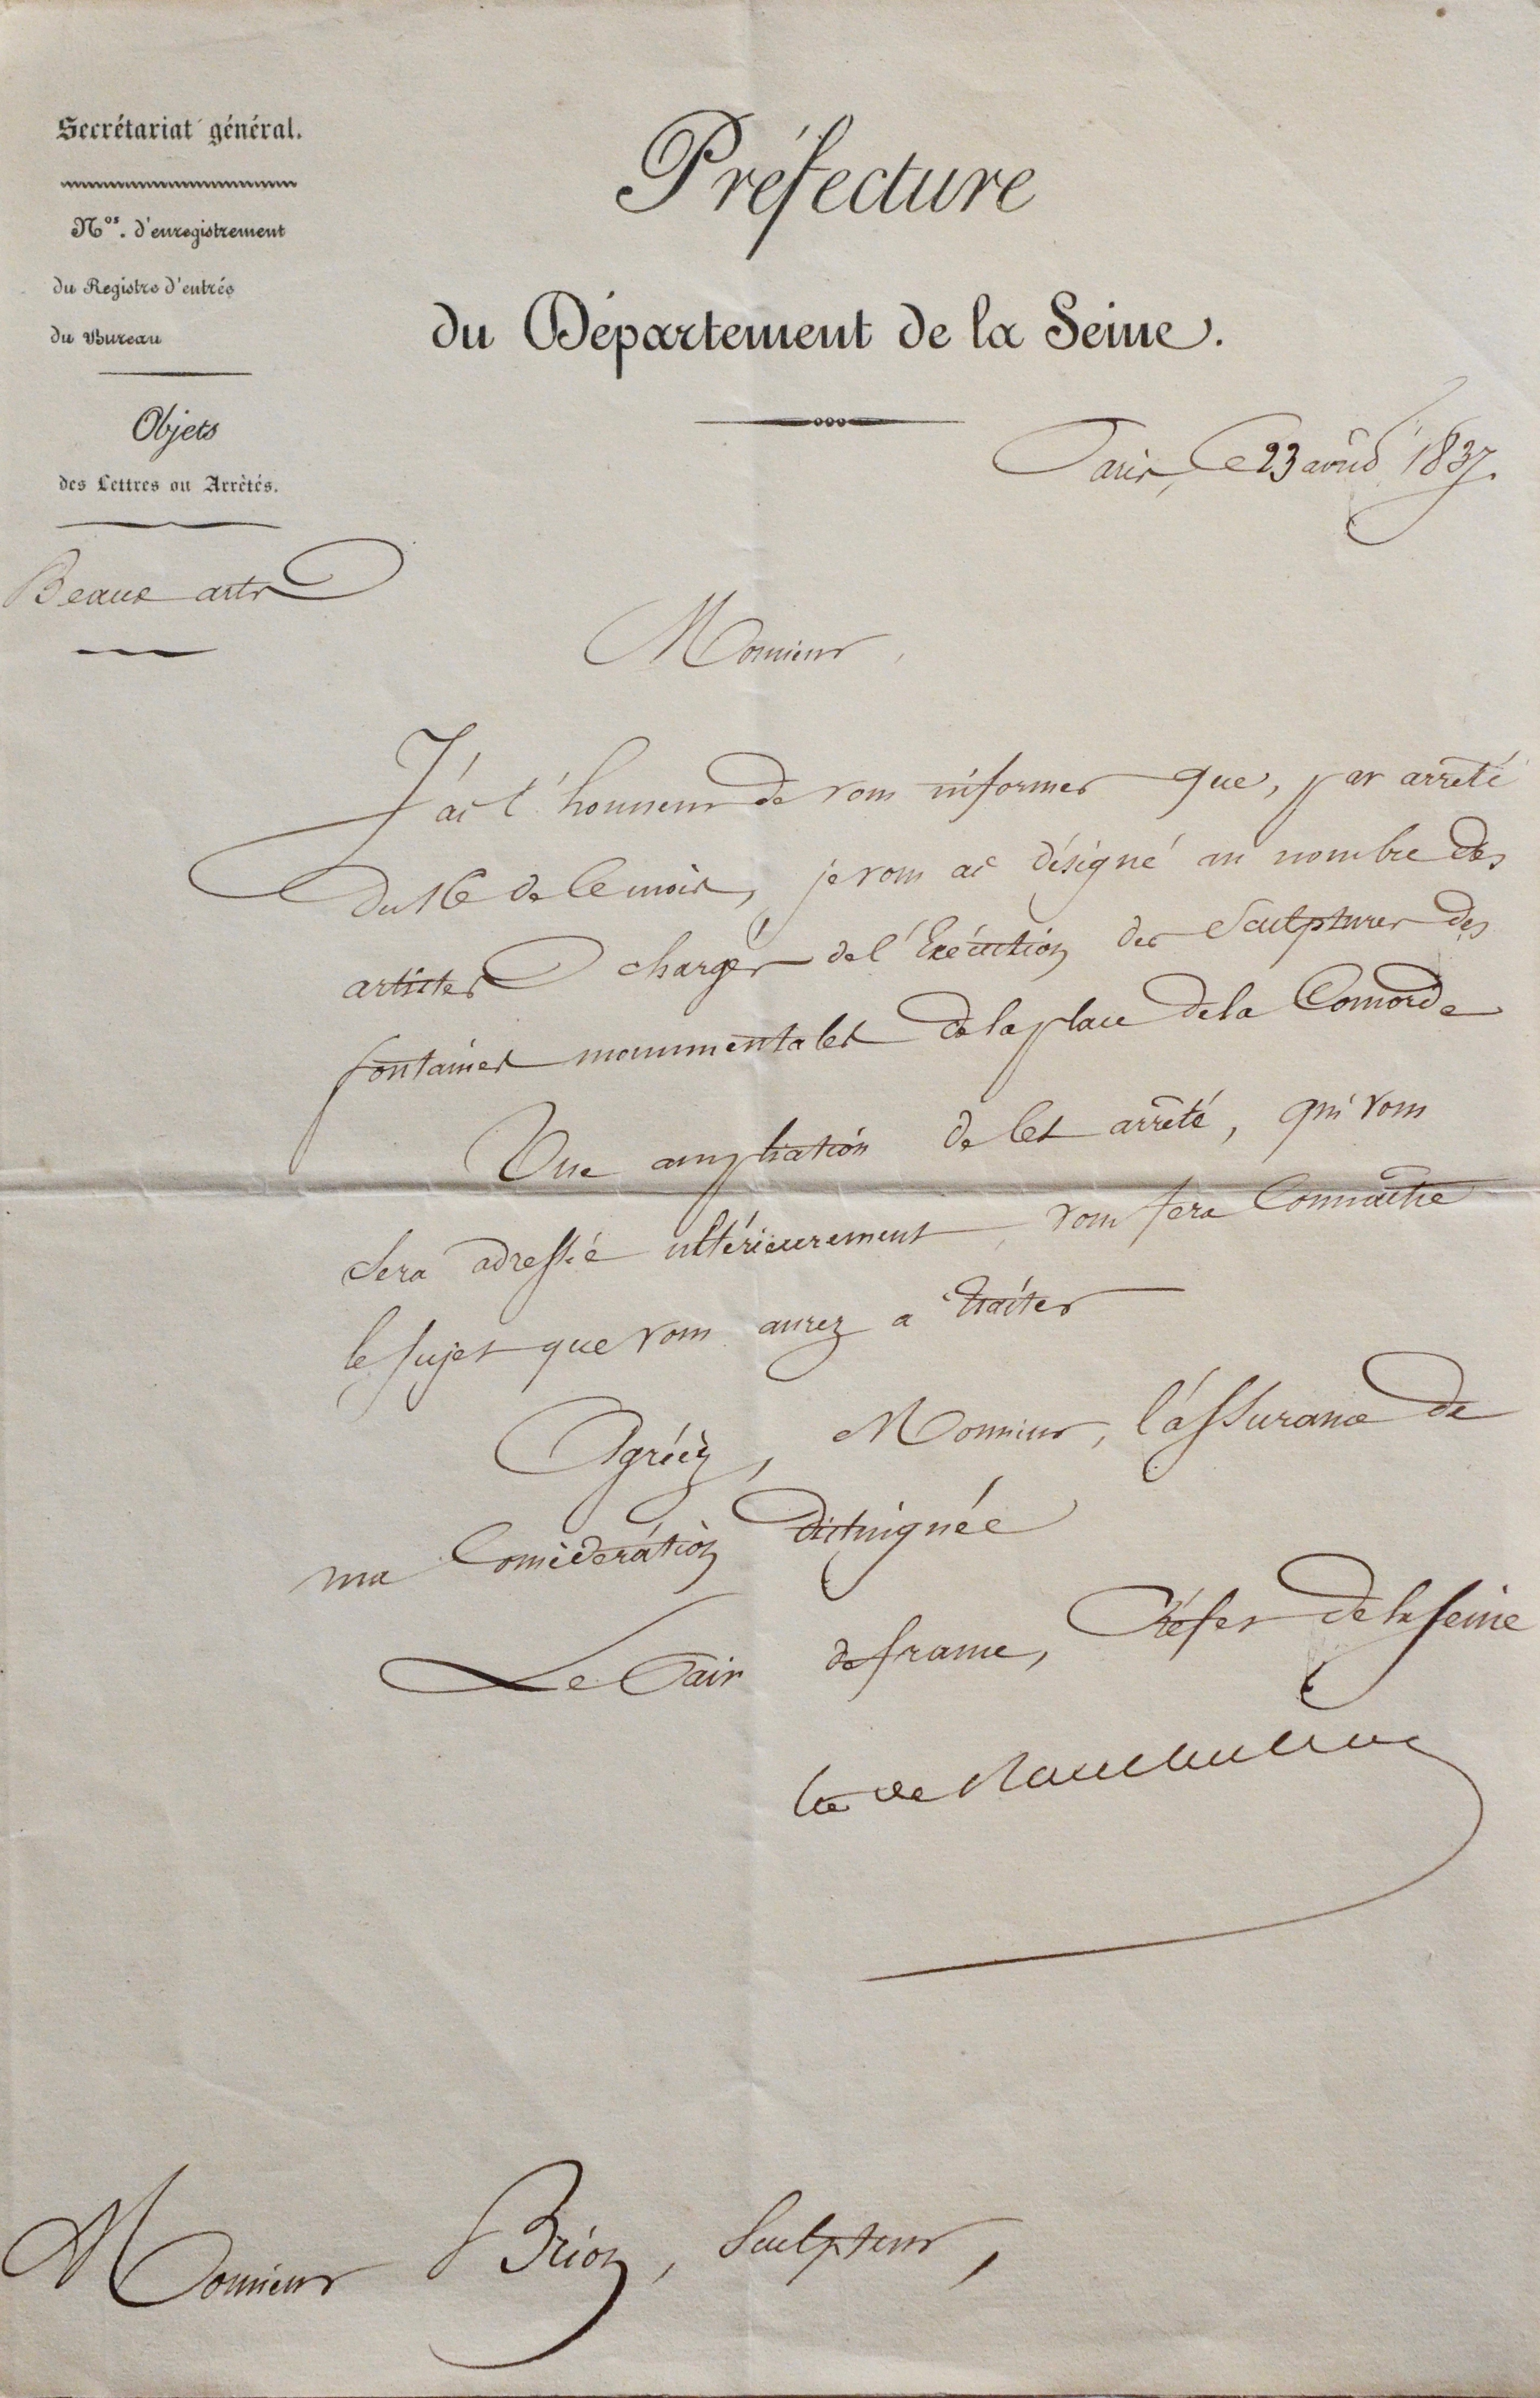 Secrétariat général.
Nos. d'enregistrement
du Registre d'entrée
du Bureau
Objets
des Lettres ou Arrêtés.
Beaux arts
Préfecture
du Département de la Seine.
Paris, le 23 août 1837.
Monsieur,
J'ai l'honneur de vous informer que, par arrêté
du 16 de ce mois, je vous ai désigné au nombre des
artistes chargés de l'Exécution des Sculptures des
fontaines monumentales de la place de la Concorde
Une ampliation de cet arrêté, qui vous
sera adressée ultérieurement, vous fera Connaître
le sujet que vous aurez à traiter
Agréez, Monsieur, l'assurance de
ma Considération distinguée
Le Pair de france, Préfet de la seine
Cte de Rambuteau
Monsieur Brion, Sculpteur,